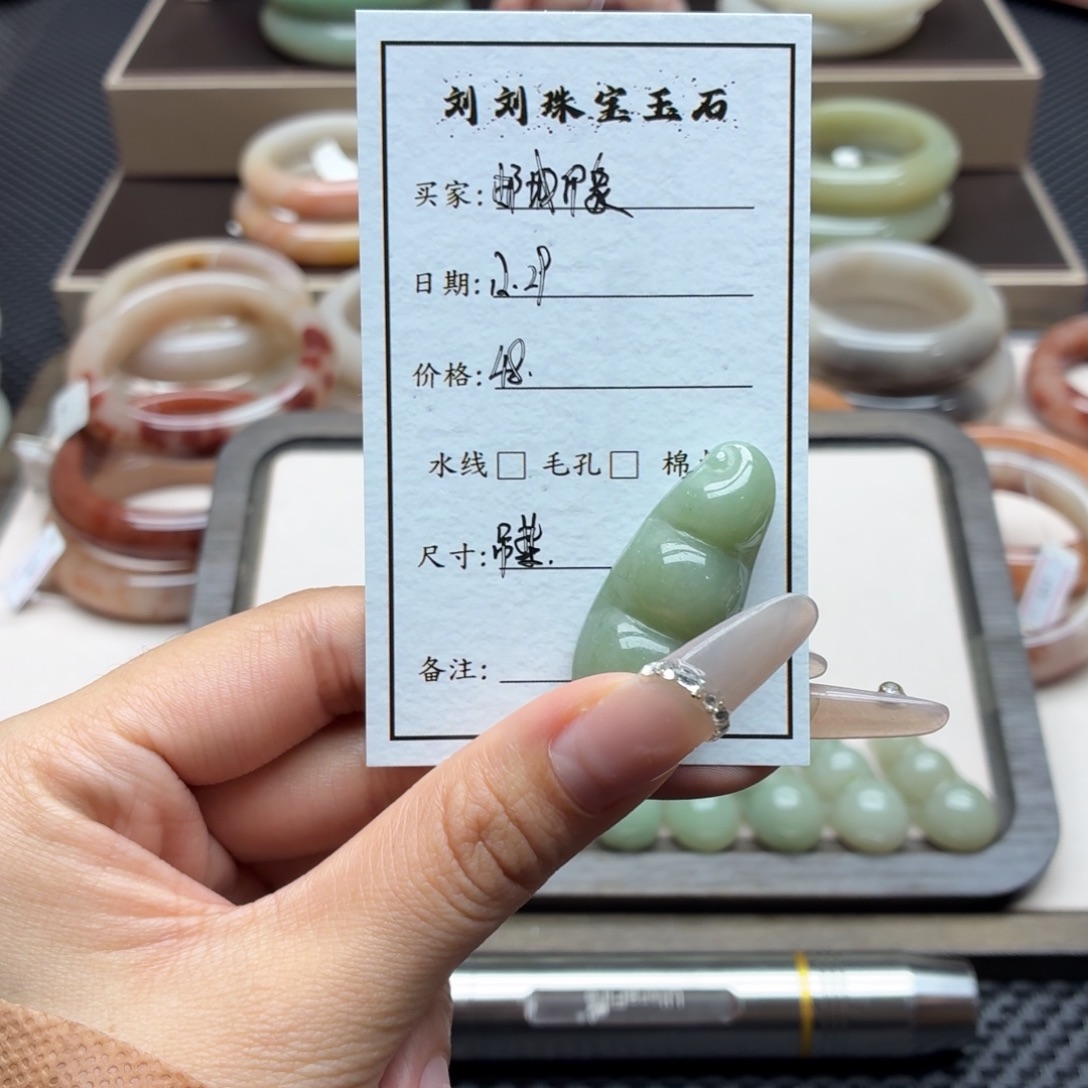 刘刘珠宝玉石
买家: 邮城印象
日期: 12.29
价格: 48.
水线□ 毛孔□ 棉
尺寸: 吊坠.
备注: